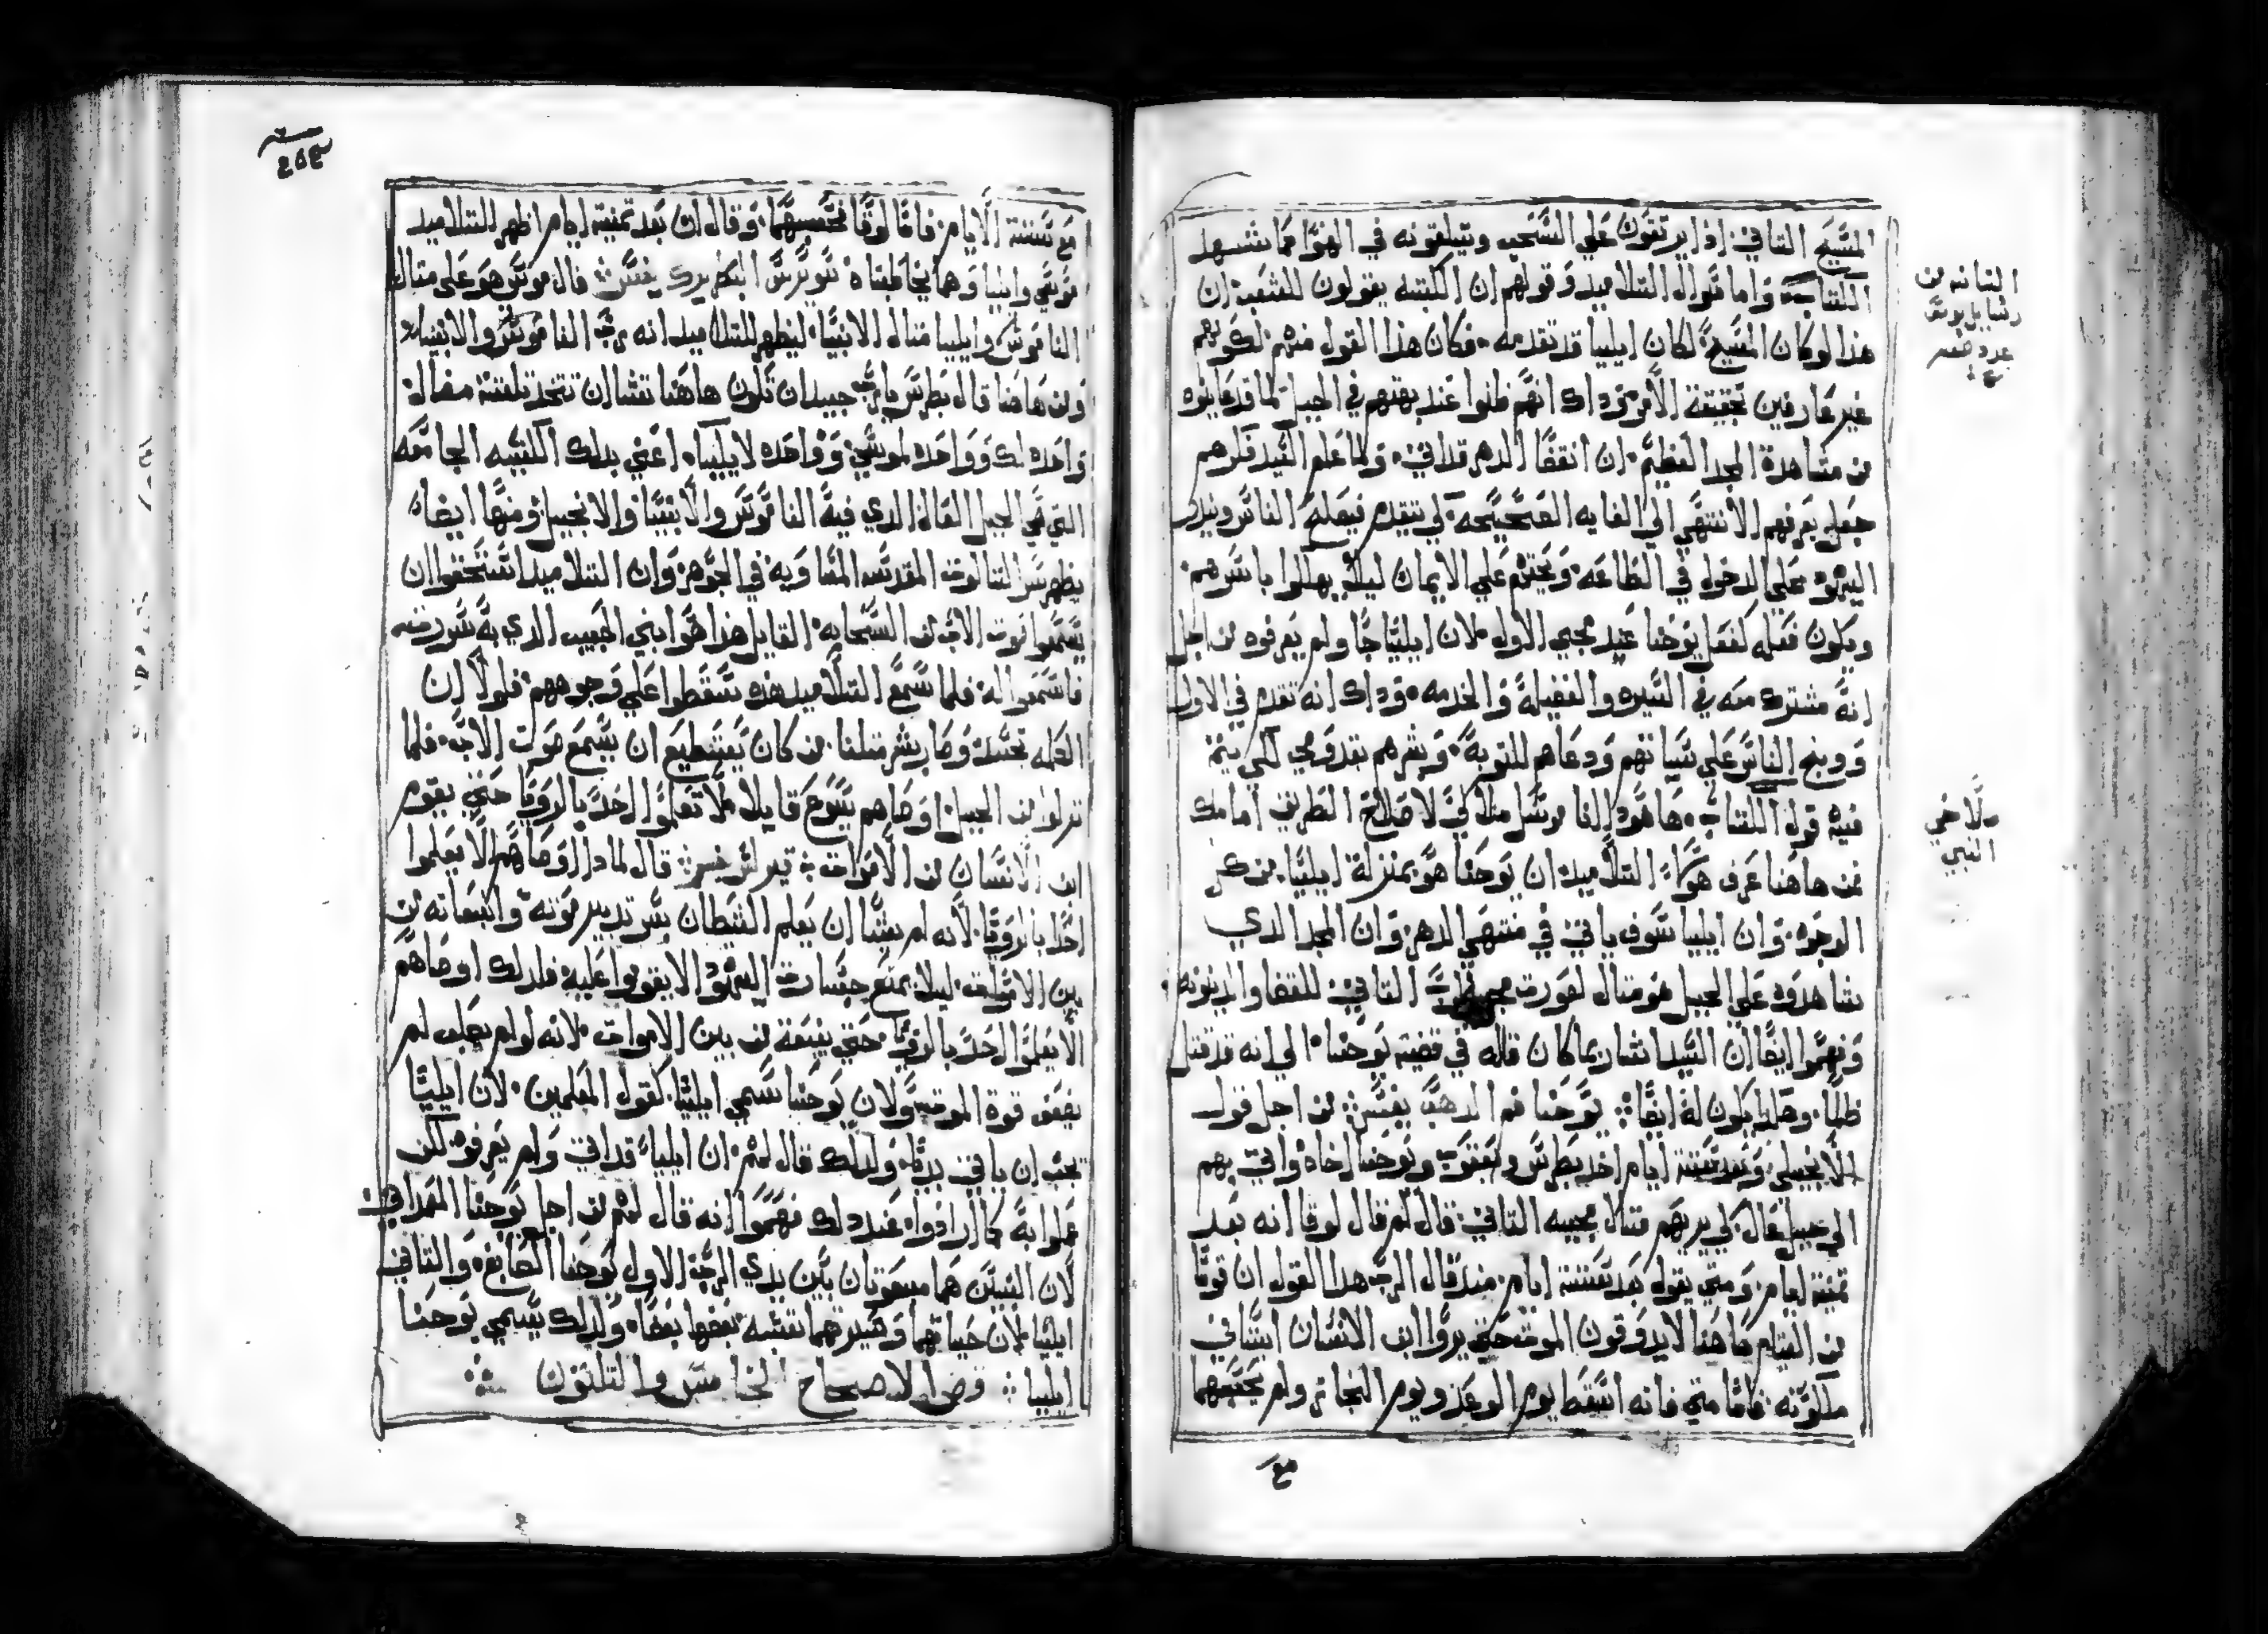 المسيح التاني. اذ يرتفعون علي السحب ويتلقونه في الهوا كما يشهد
الكتاب. واما سوال التلاميد وقولهم ان الكتبه يقولون للشعب ان
هذا لو كان المسيح لكان ايليا قد تقدمه. فكان هذا القول منهم لكونهم
غير عارفين بحقيقة الامر. وداك انهم ظنوا عند بهتهم في الجبل لما قد عاينوه
من مشاهدة المجد العظيم. ان انقضا الدهر قد اتي. ولما علم السيد فكرهم
جعل يعرفهم الانتهي الي الغايه الصحيحه. لي يتقدم فيصلح الناس ويندر
اليهود علي الدخول في الطاعه. ويحتهم علي الايمان ليلا يهلكوا باسرهم.
ويكون فعله كفعل يوحنا عند مجي الاول. لان ايليا جا ولم يعرفوه من اجل
انه مشترك معه في السيره والفضيلة والخدمه. وداك انه تقدم في الاول
ووبخ الناس علي سياتهم ودعاهم للتوبة. وبشرهم بقدومي لكي يتم
فيه قول الكتاب. ها هودا انا مرسل ملاكي لاصلاح الطريق امامك
فمن هاهنا عرف هوًلاء التلاميد ان يوحنا هو بمنزلة ايليا. من كبر
الدرجه. وان ايليا سوف ياتي في منتهي الدهر. وان المجد الدي
شاهدوه علي الجبل هو متال لصورت مجي الرب التاني للقضا والدينونه
وفهموا ايضا ان السيد اشار بما كان قاله في قضية يوحنا. الي انه قد قتل
ظلما. وهكدا يكون له ايضا ⁘ يوحنا فم الدهب يفسر ⁘ من اجل قول
الانجيلي. وبعد ستة ايام اخد بطرس ويعقوب ويوحنا اخاه واتي بهم
الي جبل عال. لكي يريهم متال مجيه التاني. قال لم قال لوقا انه بعد
تمنية ايام. ومتي يقول بعد ستة ايام. مند قال الرب هدا القول ان قوما
من القيام هاهنا لا يدوقون الموت حتي يروا ابن الانسان اتيا في
ملكوته. فاما متي فانه اسقط يوم الوعد ويوم النجاز ولم يحتسبهما
مع
التانيه من
رسايل بولس
عدد فصه
ملاخي
النبي
٤٥٤
مع ستة الايام. فاما لوقا فحسبهما. وقال ان بعد تمنية ايام اظهر للتلاميد
موسي وايليا وهما يخاطبناه ⁘ سويرس البطريرك يفسر ⁘ قال موسي هو علي متال
الناموس وايليا متال الانبيا. ليظهر للتلاميد انه رب الناموس والانبيا.
ومن هاهنا قال بطرس يارب جيد ان نكون هاهنا تشا ان نتخد تلتة مضال
واحده لك وواحده لموسي. وواحده لايليا. اعني بدلك الكنيسه الجامعه
التي هي الجبل العال. الدي فية الناموس والانبيا والانجيل ومنها ايضا
يظهر سر التالوت المقدس المساويه في الجوهر. وان التلاميد استحقوا ان
يسمعوا صوت الاب من السحابه. القايل هذا هو ابني الحبيب الدي به سررت
فاسمعوا له. فلما سمع التلاميد هذه سقطوا علي وجوههم. فلولا ان
الكلمه تجسد وصار بشر متلنا. من كان يستطيع ان يسمع صوت الاب. فلما
نزلوا من الجبل. اوصاهم يسوع قايلا. لا تعلموا احد بالرويا حتي يقوم
ابن الانسان من الاموات ⁘ قال لمادا اوصاهم الا يعلموا
احد بالرويا. لانه لم يشا ان يعلم الشيطان بسر تدبير موته. وانبعاته من
بين الاموات. ليلا يمنع جسارت اليهود الا يقووا عليه. فلدلك اوصاهم
الا يعلموا احد بالرويا حتي ينبعت من بين الاموات. لانه لو لم يصلب لم
يضعف قوة الموت. ولان يوحنا سمي ايليا. كقول المعلمين. لان ايليا
يجب ان ياتي بديا. ولدلك قال لهم. ان ايليا قد اتي ولم يعرفوه لكن
عملوا به كما ارادوا. عند دلك فهموا انه قال لهم من اجل يوحنا المعمداني
لان النبيين هما مبعوتان بين يدي الرب الاول يوحنا الصابغ. والتاني
ايليا. لان حياتهما وسيرتهما تشبه بعضها بعضا. ولدلك يسمي يوحنا
ايليا ⁘ فص الاصحاح الخامس والتلتون ⁘